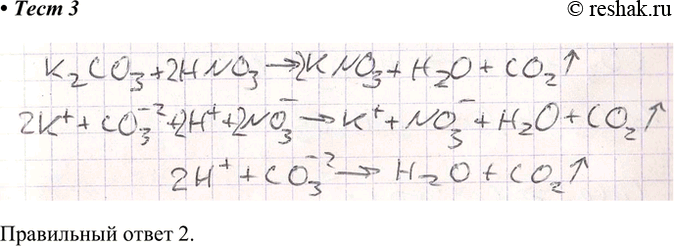 • Тест 3
© reshak.ru
K₂CO₃+2HNO₃→2KNO₃+H₂O+CO₂↑
2K⁺+CO₃⁻²+2H⁺+2NO₃⁻→K⁺+NO₃⁻+H₂O+CO₂↑
2H⁺+CO₃⁻²→H₂O+CO₂↑
Правильный ответ 2.